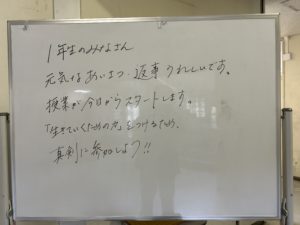 1年生のみなさん
元気なあいさつ・返事うれしいです。
授業が今日からスタートします。
「生きていくための力」をつけるため、
真剣に参加しよう!!